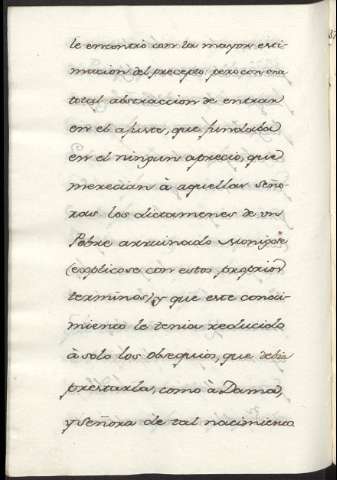 le encontró con la mayor esti-
macion del precepto: pero con una
total abstraccion de entrar
en el ajuste, que fundaba
en el ningun aprecio, que
merecian à aquellas seño-
ras los dictamenes de un
Pobre arruinado Monigote
(explicose con estos proprios
terminos) y que este conoci-
miento le tenia reducido
à solo los obsequios, que debia
prestarlas, como à Damas,
y Señoras de tal nacimiento